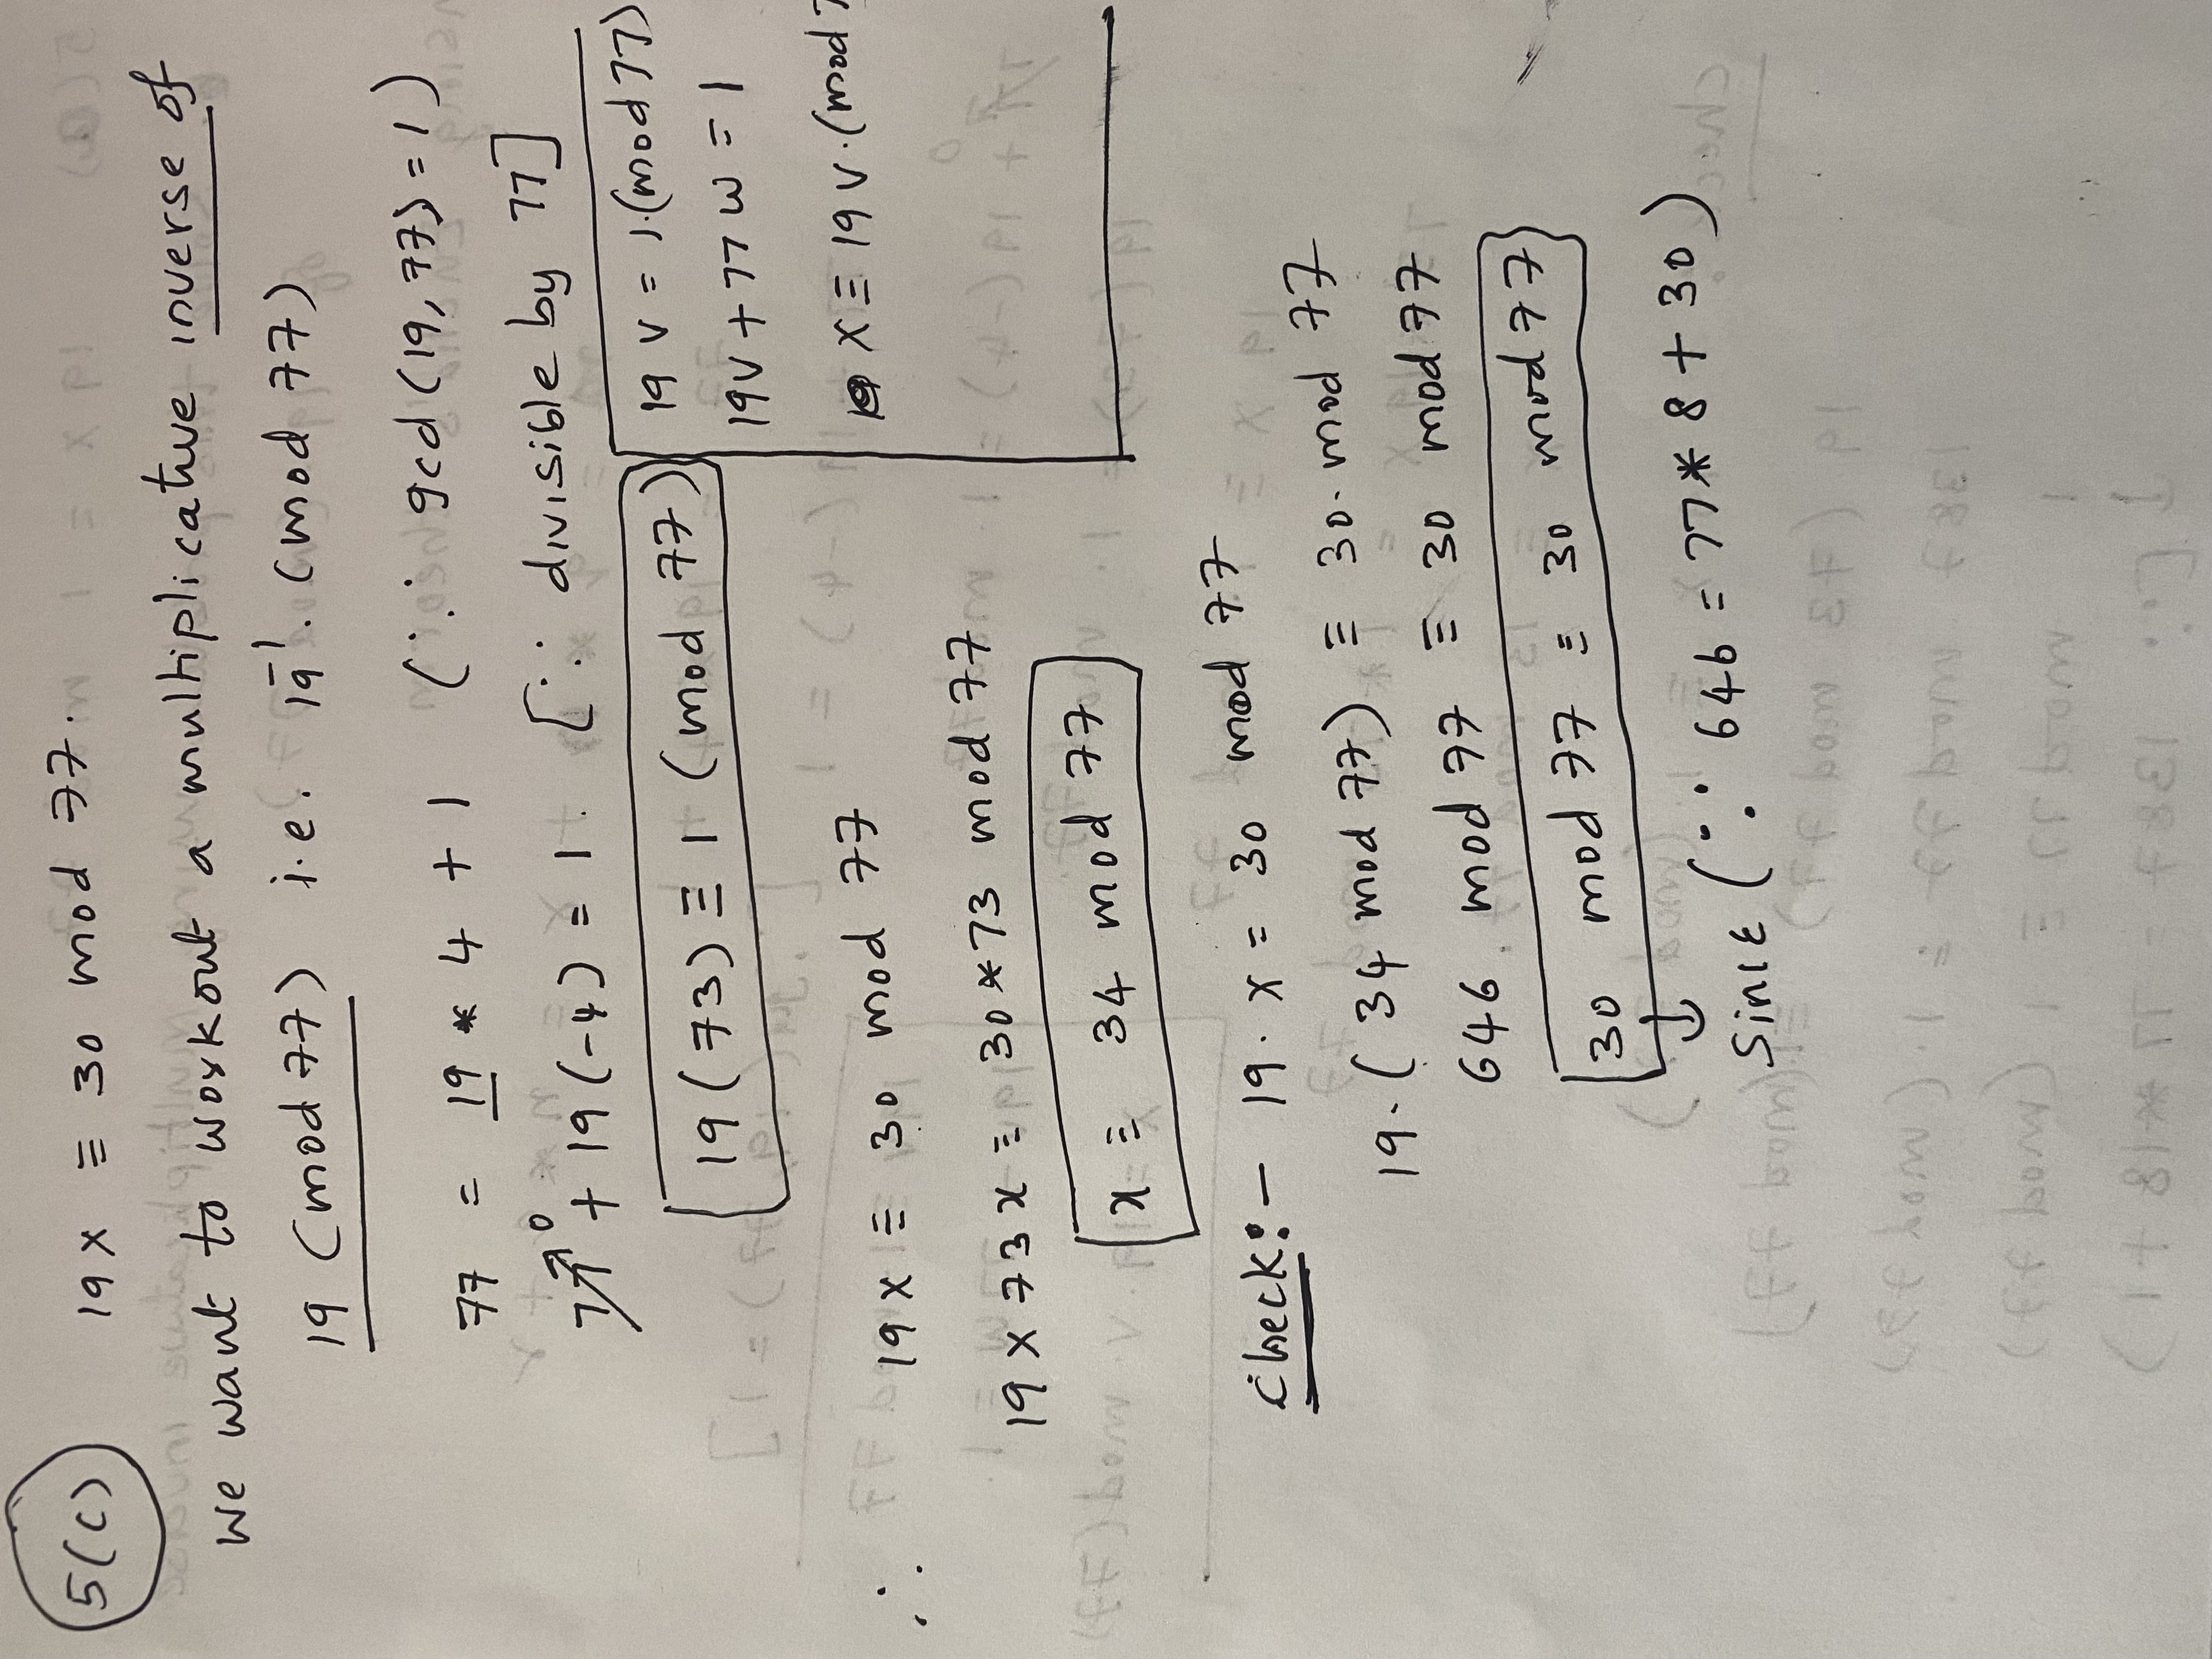 5(c)
19x ≡ 30 mod 77.
We want to workout a multiplicative inverse of
19 (mod 77) i.e. 19⁻¹. (mod 77)
77 = 19 * 4 + 1 (∵ gcd(19, 77) = 1)
77 ↗ 0 + 19(-4) = 1. [∵ divisible by 77]
19(73) ≡ 1 (mod 77)
19 V = 1.(mod 77)
19V + 77 W = 1
X ≡ 19 V.(mod 7
∴ 19x ≡ 30 mod 77
19 x 73 x ≡ 30 * 73 mod 77
x ≡ 34 mod 77
Check:- 19. x = 30 mod 77
19.(34 mod 77) ≡ 30. mod 77
646 mod 77 ≡ 30 mod 77
30 mod 77 ≡ 30 mod 77
↓
Since (∵ 646 = 77 * 8 + 30)